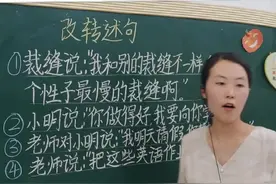 改转述句
①裁缝说:“我和别的裁缝不一样
个性子最慢的裁缝啊。”
②小明说:“你做得好,我要向你学
③老师对小明说:“我明天请假
④老师说:“把这些英语作